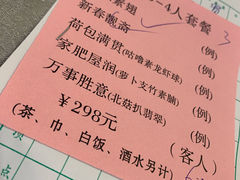 4人套餐
3
新春靓斋 (例)
荷包满贯(咕噜素龙虾球) (例)
家肥屋润(萝卜支竹素腩) (例)
万事胜意(北菇扒翡翠) (例)
￥298元 (客人)
(茶、巾、白饭、酒水另计)